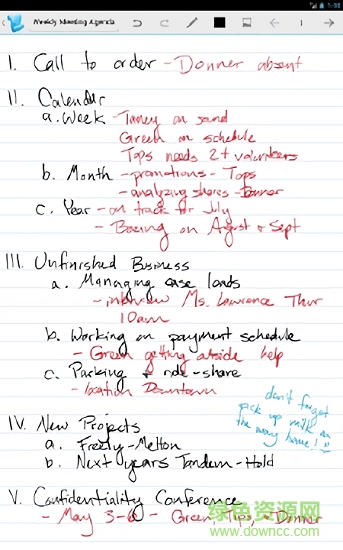 1:98
Weekly Meeting Agenda
1
I. Call to order - Donner absent
II. Calendar
a. Week - Tamey on sand
Green on schedule
Tops needs 2+ volunteers
b. Month - promotions - Tops
- analyzing shares - Donner
c. Year - on track for July
- Boeing on August + Sept
III. Unfinished Business
a. Managing case loads
- interview Ms. Lawrence Thur
10am
b. Working on payment schedule
- Green getting outside help
c. Parking + ride-share
- location Downtown
don't forget
pick up milk on
the way home!!
IV. New Projects
a. Freely-Melton
b. Next years Tandem-Hold
V. Confidentiality Conference
- May 3-6 - Green, Tips, + Donner
绿色资源网
www.downcc.com